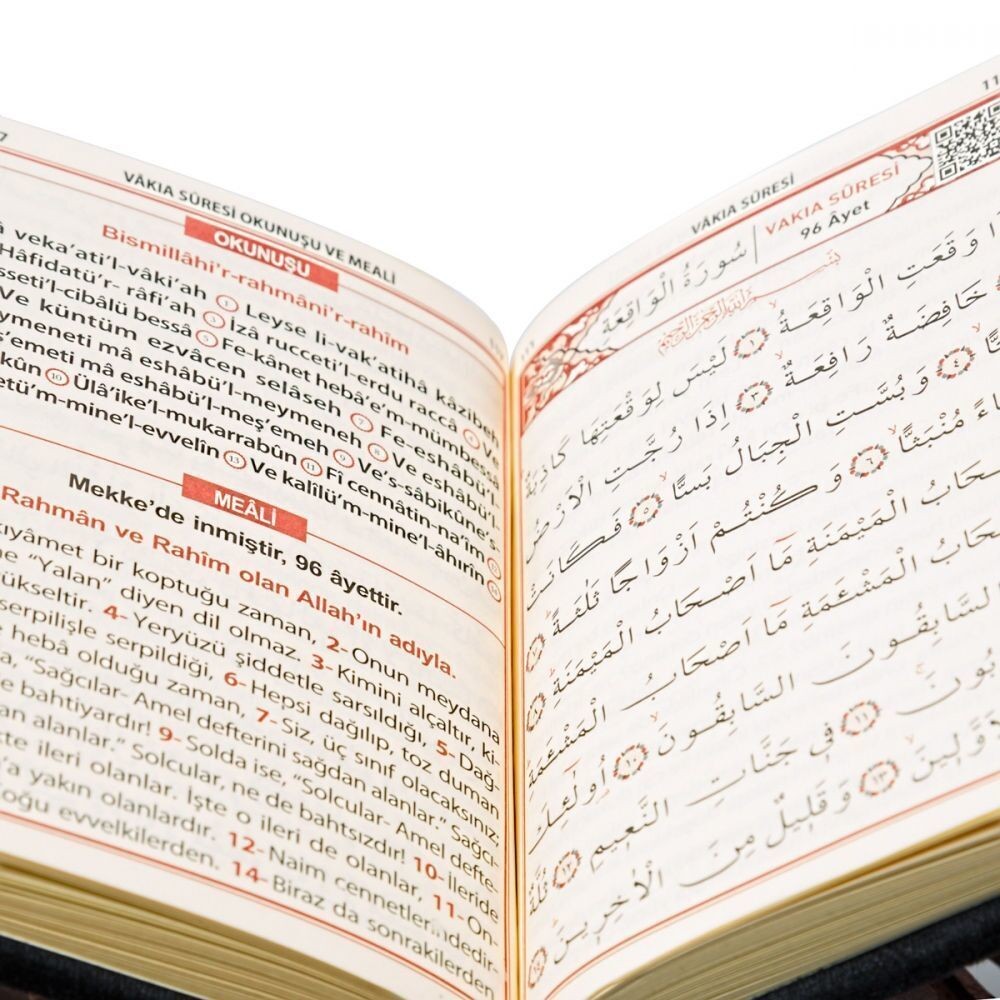 7
VÂKIA SÛRESİ OKUNUŞU VE MEALİ
OKUNUŞU
Bismillâhi'r-rahmâni'r-rahîm
veka'ati'l-vâki'ah ① Leyse li-vak'atihâ kâzibeh
Hâfidatü'r- râfi'ah ③ İzâ rucceti'l-erdu raccâ ④ Ve
sseti'l-cibâlü bessâ ⑤ Fe-kânet hebâ'e'm-mümbessâ
Ve küntüm ezvâcen selâseh ⑦ Fe-eshâbü'l-
ymeneti mâ eshâbü'l-meymeneh ⑧ Ve eshâbü'l-
ş'emeti mâ eshâbü'l-meş'emeh ⑨ Ve's-sâbikûne's-
kûn ⑩ Ülâ'ike'l-mukarrabûn ⑪ Fî cennâtin-na'îm ⑫
etü'm-mine'l-evvelîn ⑬ Ve kalîlü'm-mine'l-âhırîn ⑭
MEÂLİ
Mekke'de inmiştir, 96 âyettir.
Rahmân ve Rahîm olan Allah'ın adıyla.
kıyâmet bir koptuğu zaman, 2- Onun meydana
ne "Yalan" diyen dil olmaz. 3- Kimini alçaltır, ki-
ükseltir. 4- Yeryüzü şiddetle sarsıldığı, 5- Dağ-
serpilişle serpildiği, 6- Hepsi dağılıp, toz duman
heba olduğu zaman, 7- Siz, üç sınıf olacaksınız;
a, "Sağcılar- Amel defterini sağdan alanlar." Sağcı-
e bahtiyardır! 9- Solda ise, "Solcular- Amel defte-
an alanlar." Solcular, ne de bahtsızdır! 10- İleride
şte ileri olanlar. İşte o ileri de olanlar, 11- On-
'a yakın olanlardır. 12- Naim cennetlerindedir-
Çoğu evvelkilerden. 14- Biraz da sonrakilerden
11
VÂKIA SÛRESİ
سُورَةُ الْوَاقِعَةِ
VAKIA SÛRESİ
96 Âyet
بِسْمِ اللهِ الرَّحْمٰنِ الرَّحِيمِ
ا وَقَعَتِ الْوَاقِعَةُ ﴿١﴾ لَيْسَ لِوَقْعَتِهَا كَاذِبَةٌ
خَافِضَةٌ رَافِعَةٌ ﴿٣﴾ اِذَا رُجَّتِ الْاَرْضُ
ًّا ﴿٤﴾ وَبُسَّتِ الْجِبَالُ بَسًّا ﴿٥﴾ فَكَانَتْ
اءً مُنْبَثًّا ﴿٦﴾ وَكُنْتُمْ اَزْوَاجًا ثَلٰثَةً ﴿٧﴾
حَابُ الْمَيْمَنَةِ مَٓا اَصْحَابُ الْمَيْمَنَةِ ﴿٨﴾
حَابُ الْمَشْـَٔمَةِ مَٓا اَصْحَابُ الْمَشْـَٔمَةِ
السَّابِقُونَ السَّابِقُونَ ﴿١٠﴾ اُو۬لٰٓئِكَ
بُونَ ﴿١١﴾ فِي جَنَّاتِ النَّعِيمِ ﴿١٢﴾ ثُلَّةٌ
وَّلِينَ ﴿١٣﴾ وَقَلِيلٌ مِنَ الْاٰخِرِينَ ﴿١٤﴾